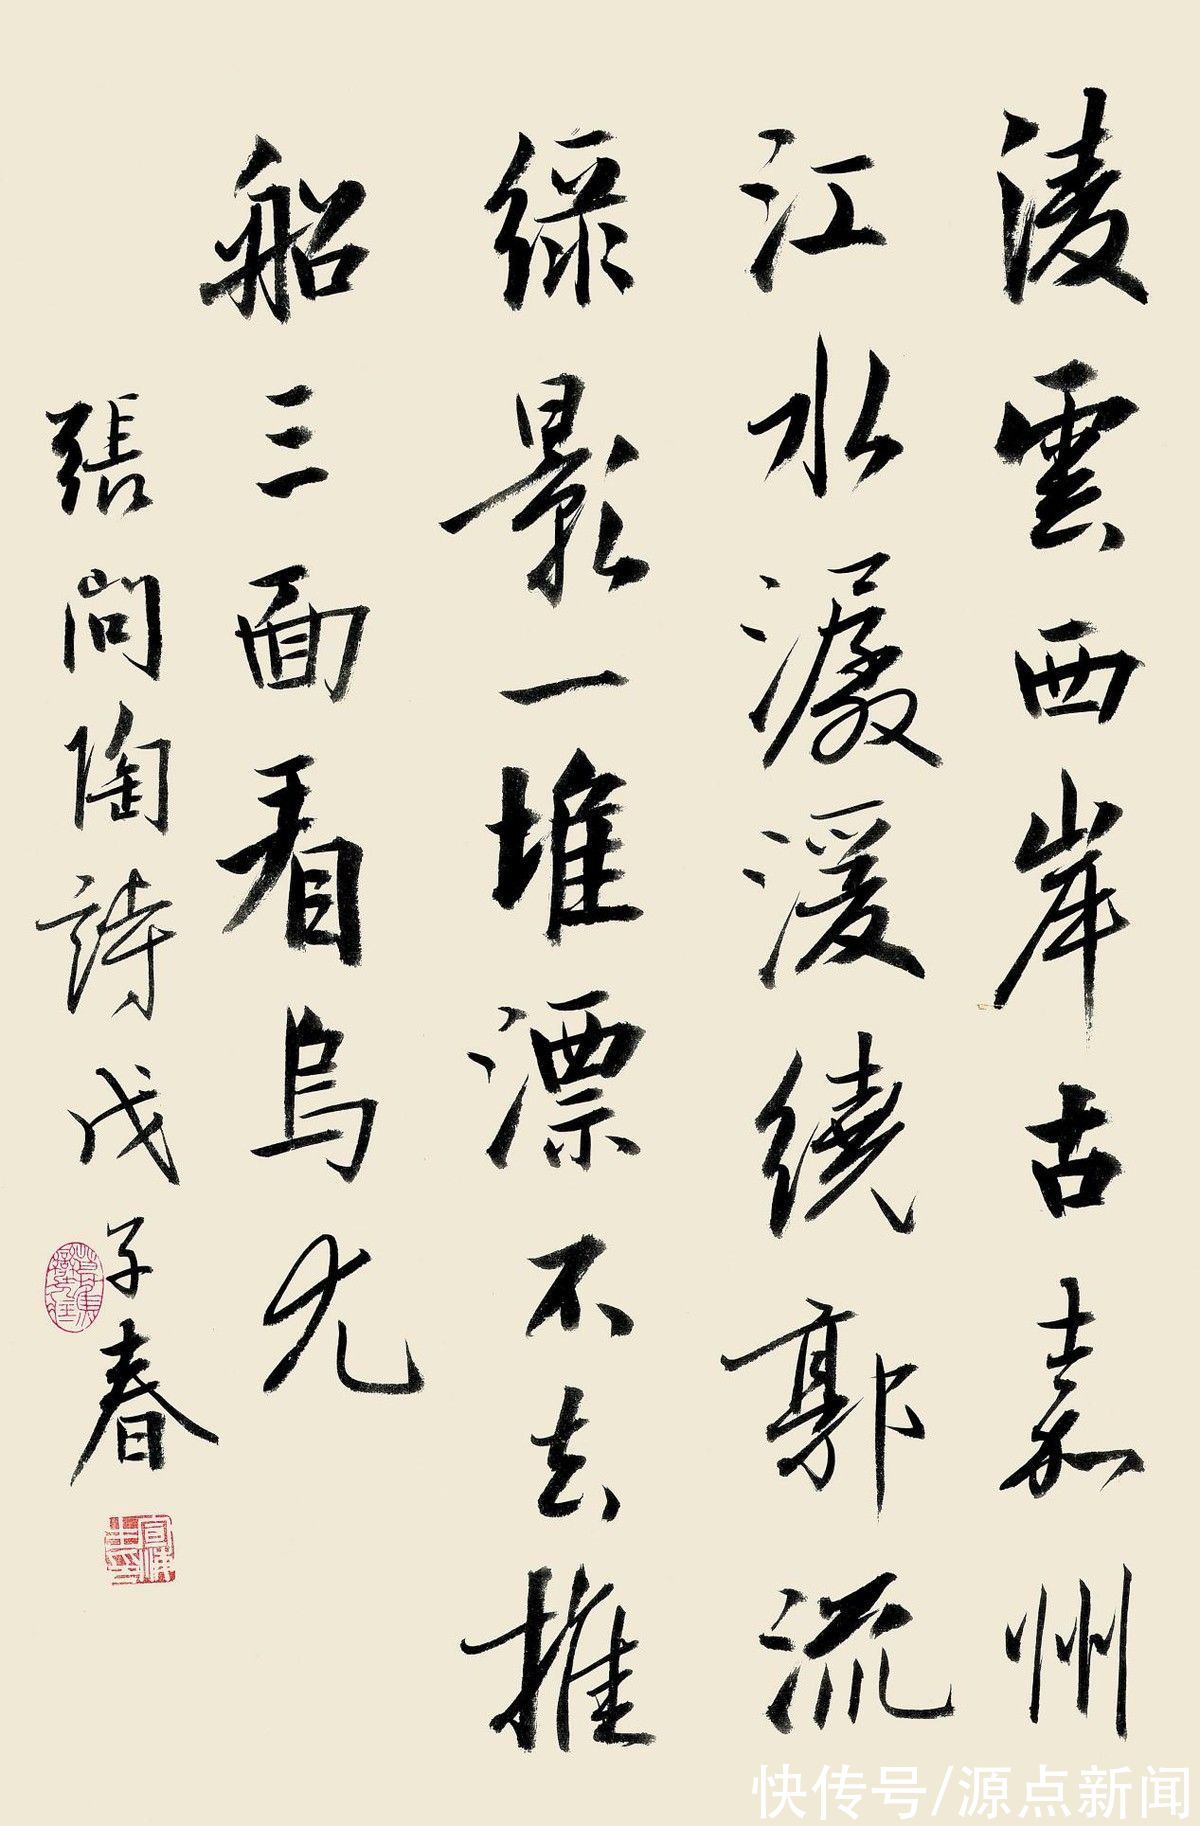 淩雲西岸古嘉州
江水潺湲繞郭流
綠影一堆漂不去推
船三面看烏尤
張問陶詩戊子春
快传号/源点新闻